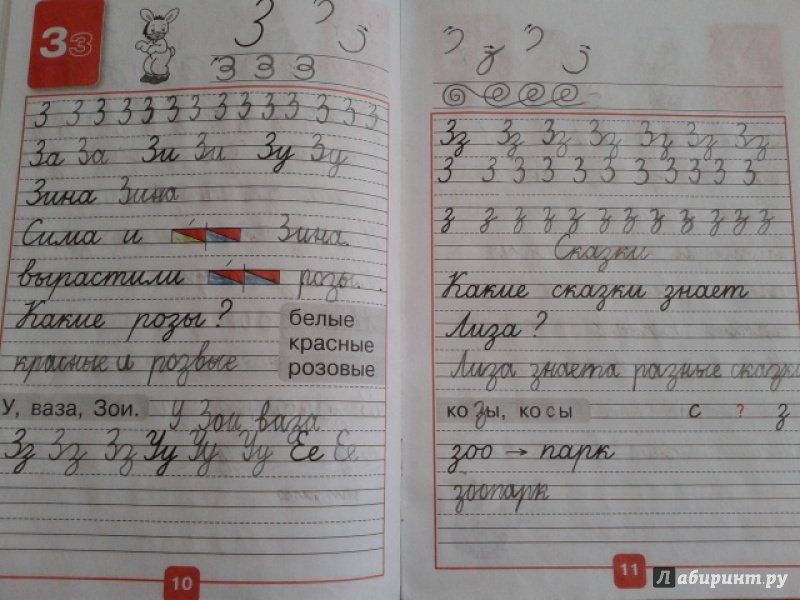 Зз
З
З З З
З З З З З З З З З З З З З З
За За Зи Зи Зу Зу
Зина Зина
Сима и Зина.
вырастили розы.
Какие розы?
белые
красные
розовые
красные и розвые
У, ваза, Зои.
У Зои ваза
Зз Зз Зз Уу Уу Уу Ее Ее
10
Зз Зз Зз Зз Зз Зз Зз
З З З З З З З З З З З
з з з з з з з з з з з
Сказки
Какие сказки знает
Лиза?
Лиза знаета разные сказки
козы, косы с ? з
зоо → парк
зоопарк
11
Лабиринт.ру